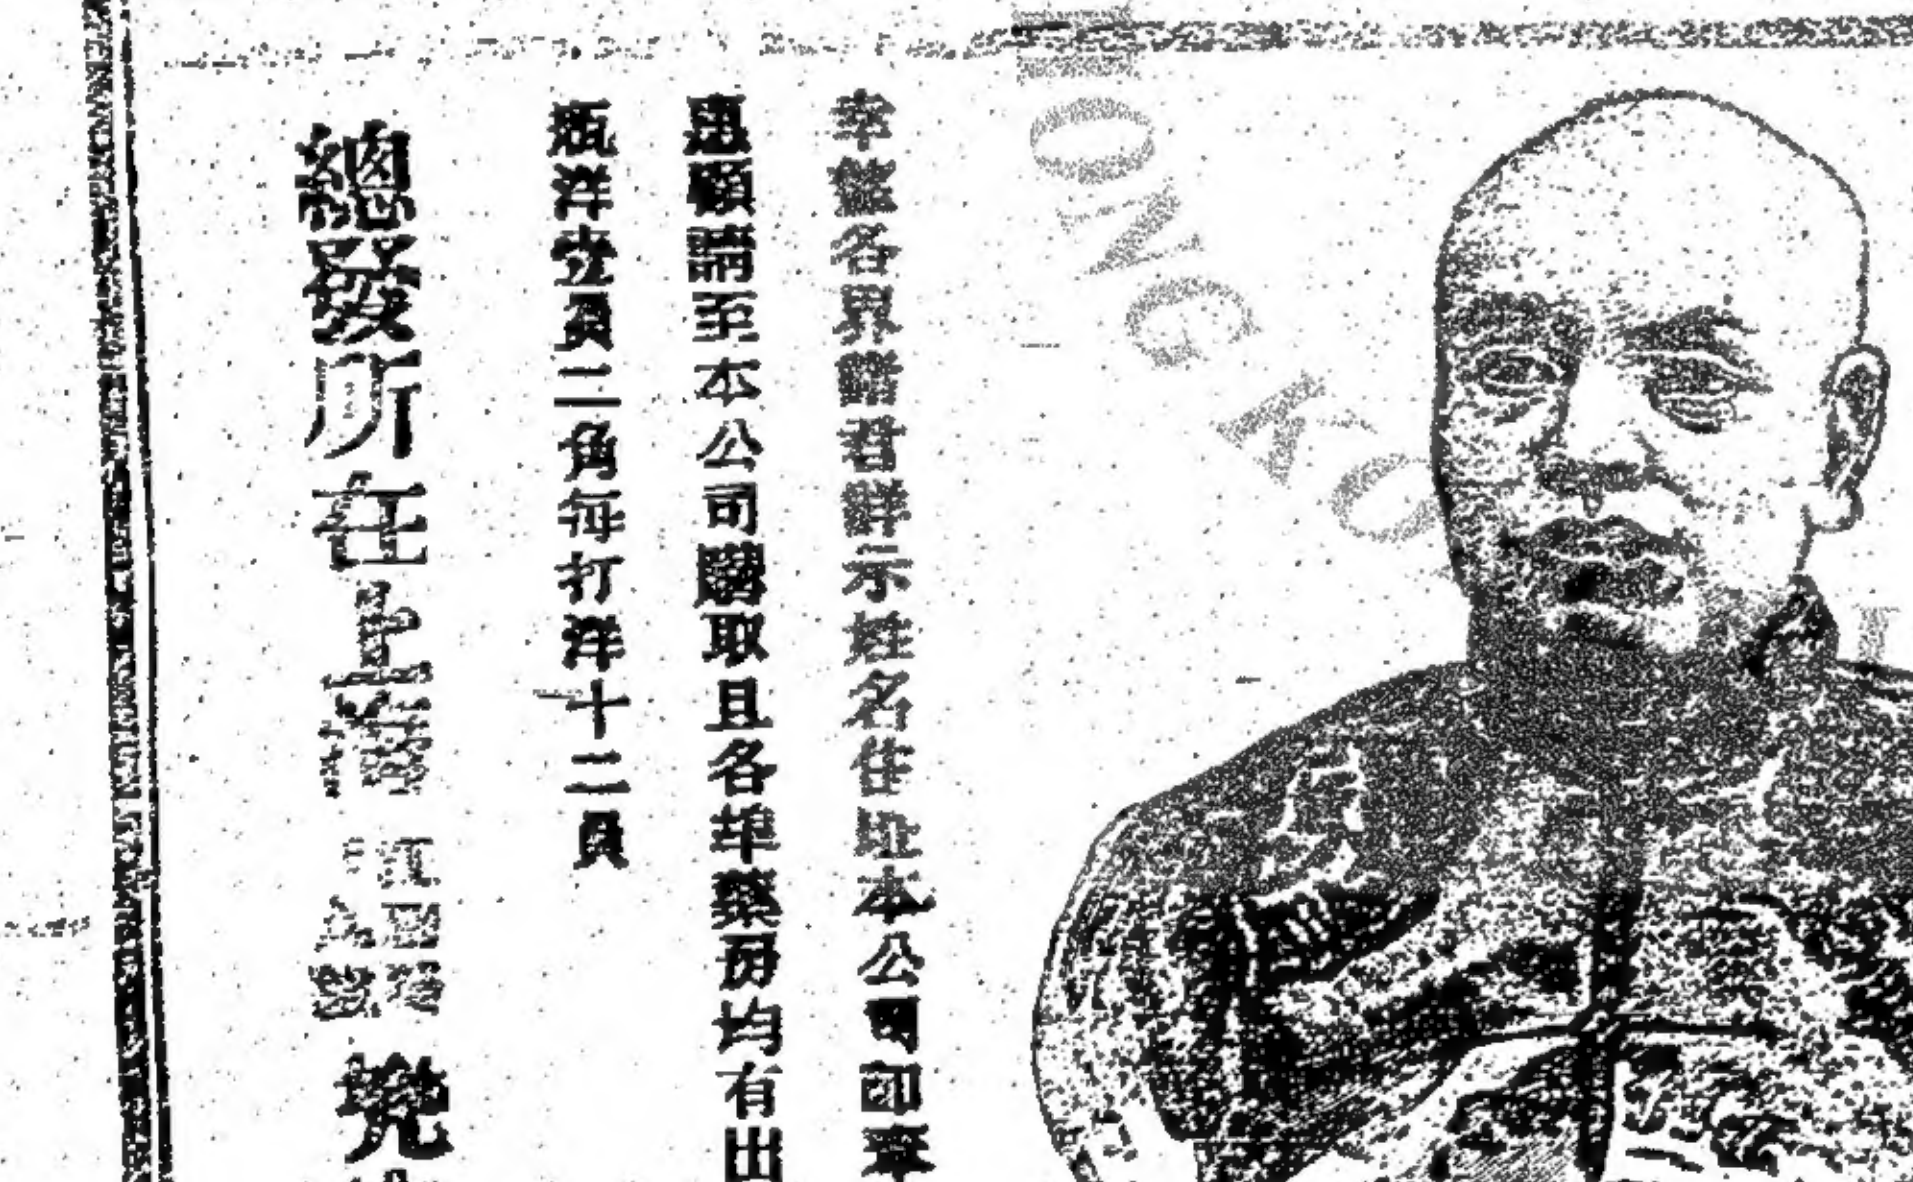 幸蒙各界諸君詳示姓名住址本公司印奉
惠顧請至本公司購取且各埠藥房均有出
瓶洋壹員二角每打洋十二員
總發所在上海
HONG KO